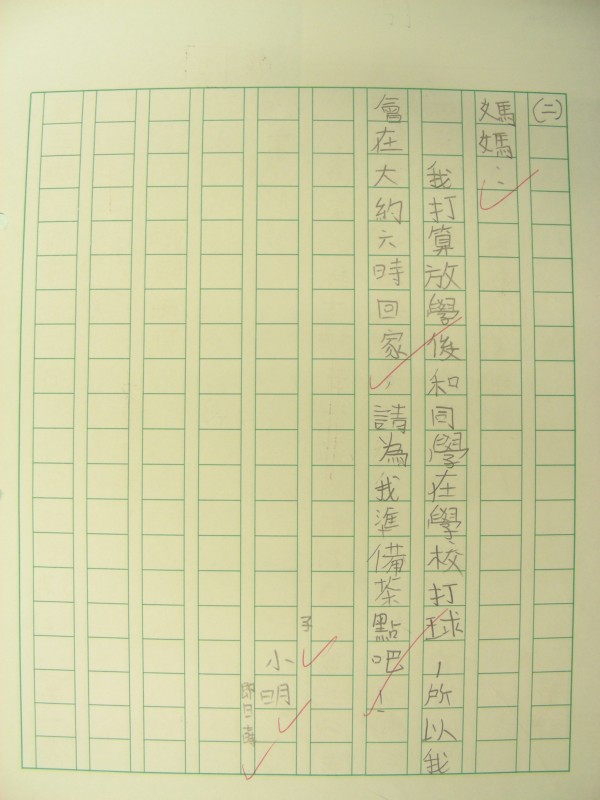 (二)
媽媽：
我打算放學後和同學在學校打球，所以我
會在大約六時回家，請為我準備茶點吧！
子
小明
即日